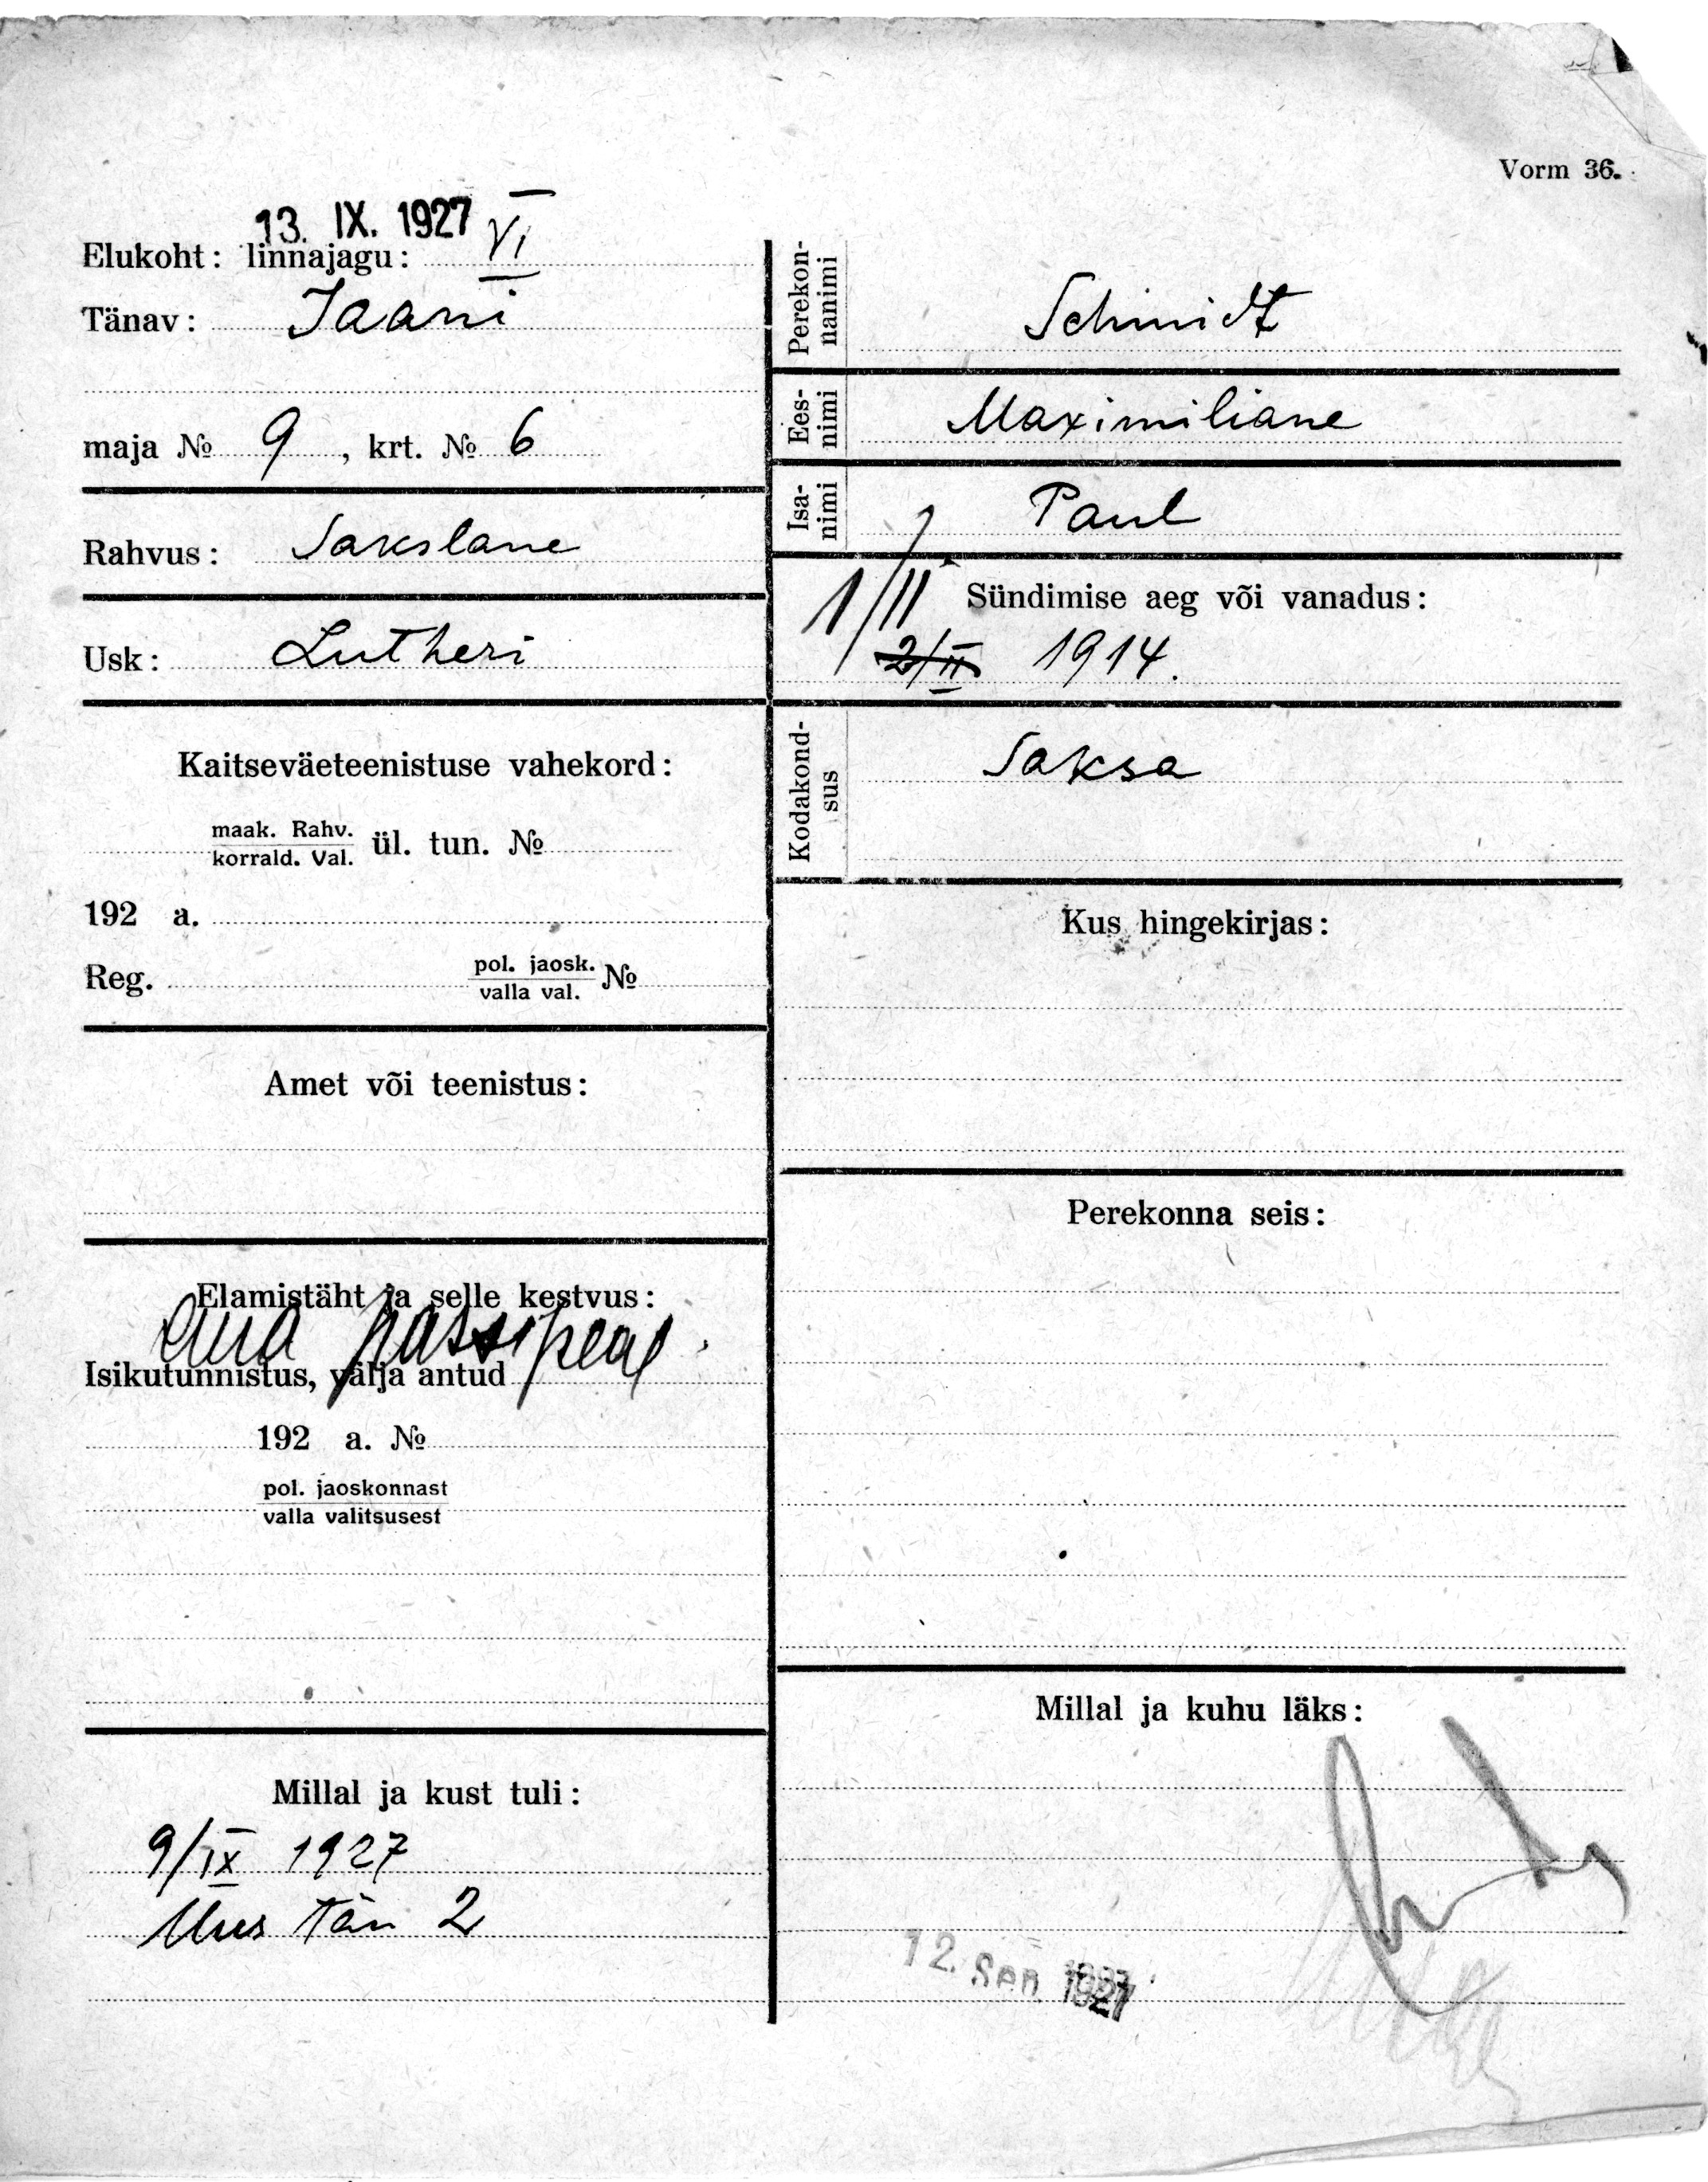 Vorm 36.
13. IX. 1927
Elukoht: linnajagu: VI
Tänav: Jaani
maja № 9, krt. № 6
Rahvus: Sakslane
Usk: Lutheri
Kaitseväeteenistuse vahekord:
maak. Rahv.
korrald. Val. ül. tun. №
192 a.
Reg. pol. jaosk. №
valla val.
Amet või teenistus:
Elamistäht ja selle kestvus:
ema passi peal
Isikutunnistus, välja antud
192 a. №
pol. jaoskonnast
valla valitsusest
Millal ja kust tuli:
9/IX 1927
Uus tän 2
Perekon-
nanimi
Schmidt
Ees-
nimi
Maximiliane
Isa-
nimi
Paul
Sündimise aeg või vanadus:
1/II
2/II 1914.
Kodakond-
sus
Saksa
Kus hingekirjas:
Perekonna seis:
Millal ja kuhu läks:
12. Sep. 1927